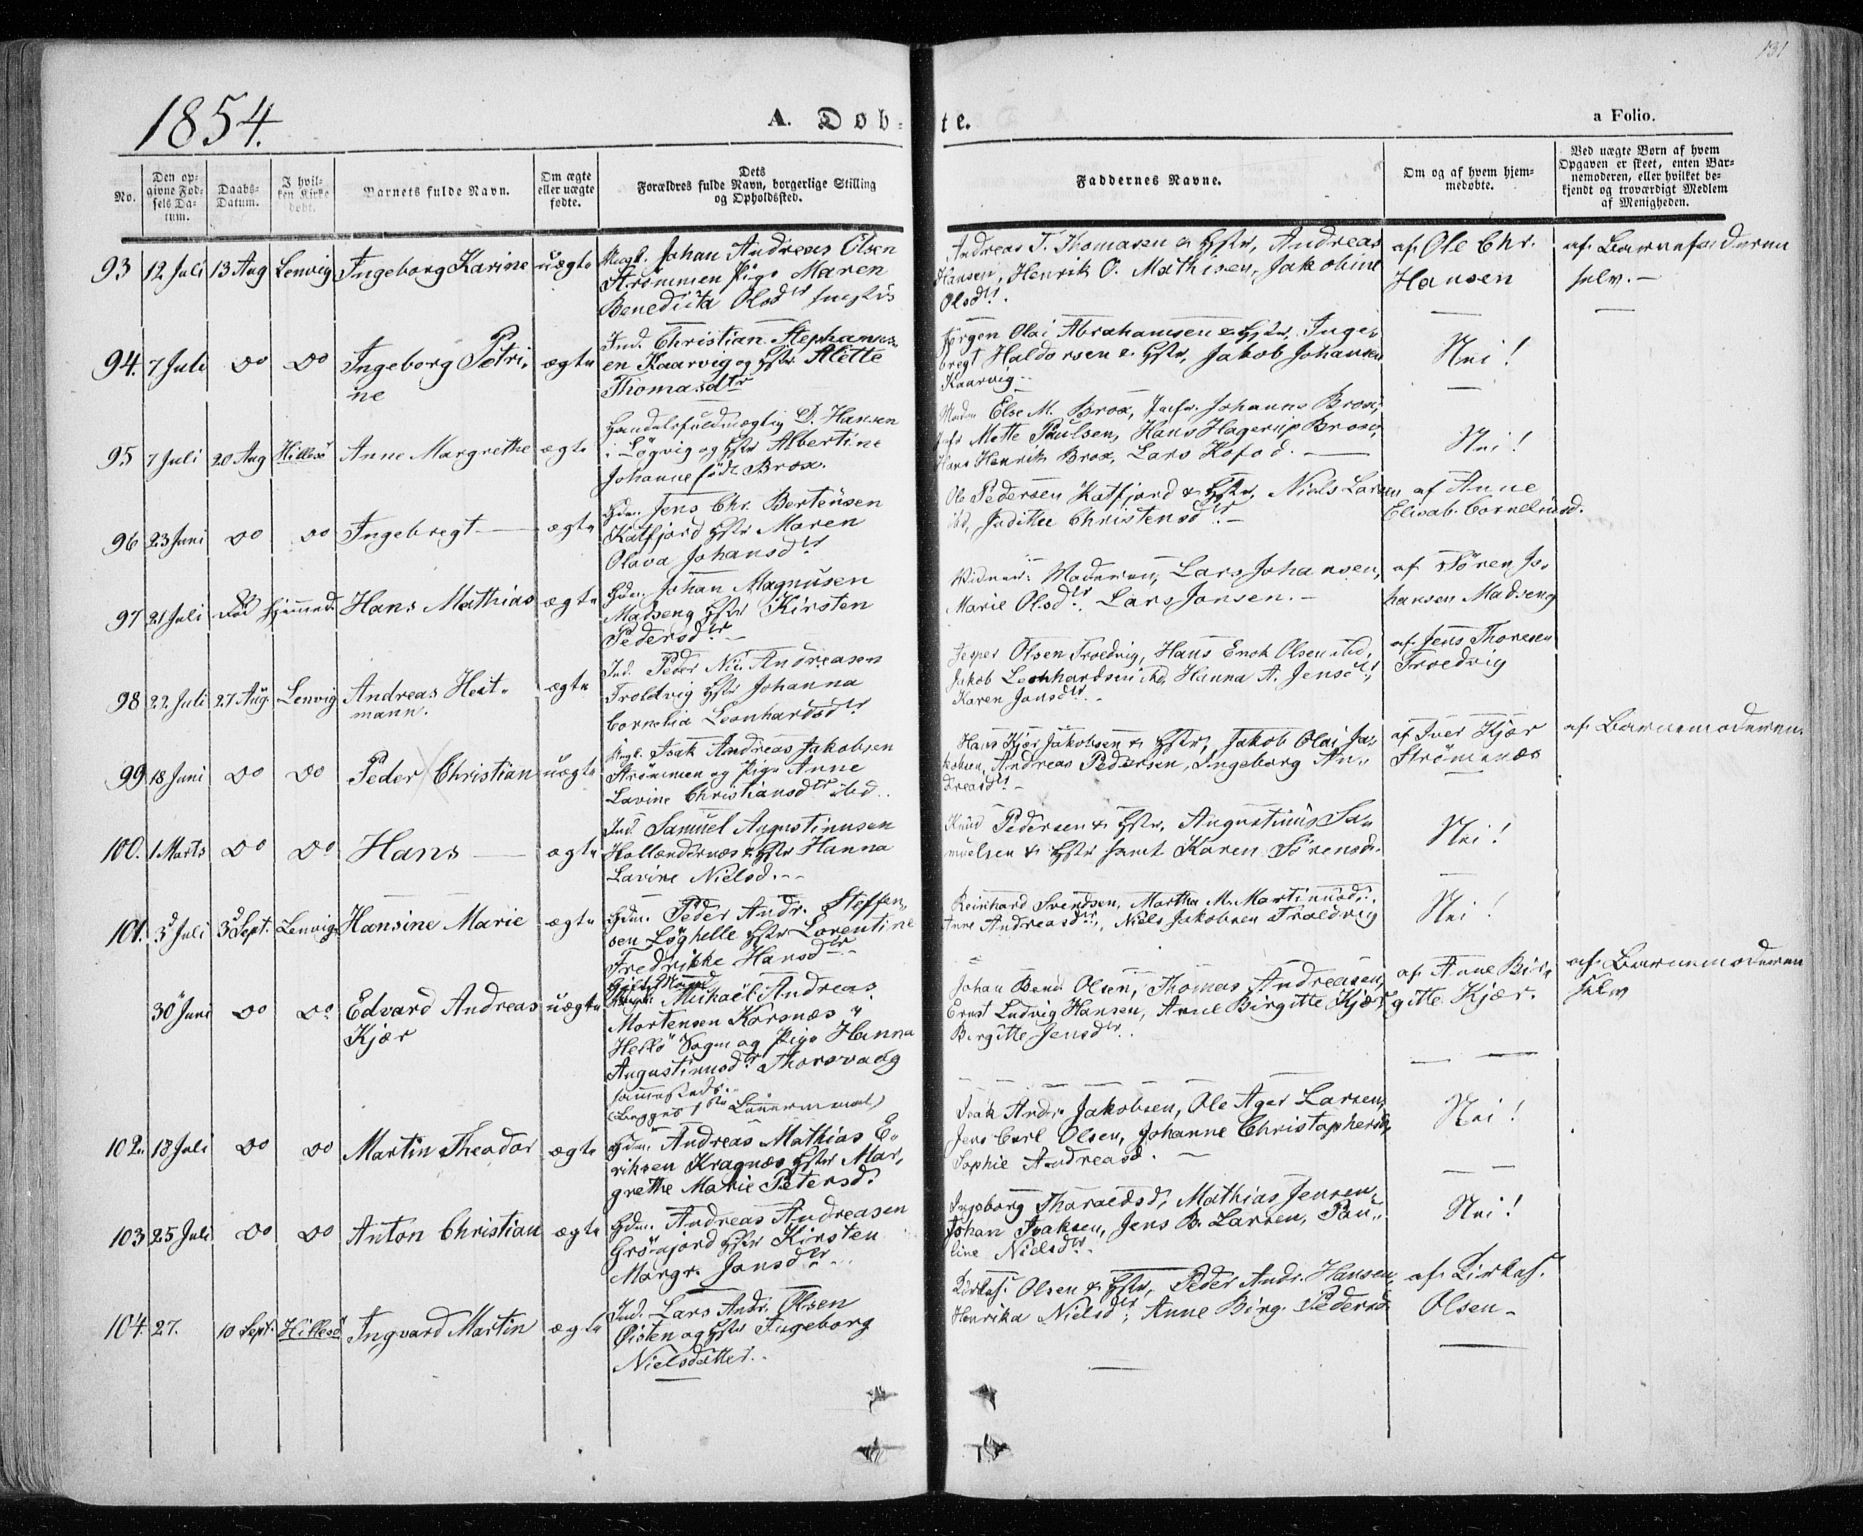 131
1854.
A. Döb-
te.
a Folio.
No.
Den op-
givne Fød-
sels Da-
tum.
Daabs-
Datum.
I hvil-
ken Kirke
døbt.
Barnets fulde Navn.
Om ægte
eller uægte
fødte.
Dets
Forældres fulde Navn, borgerlige Stilling
og Opholdssted.
Faddernes Navne.
Om og af hvem hjem-
medøbte.
Ved uægte Børn af hvem
Opgaven er skeet, enten Bar-
nemoderen, eller hvilket be-
kjendt og troværdigt Medlem
af Menigheden.
93 12 Juli 13 Aug Lenvig Ingeborg Karine uægte
Ungk. Johan Andreas Olsen
Strömmen Pige Maren
Benedicta Olsdtr
Andreas T. Thomasen & Hstr, Andreas
Hansen, Henrik O. Mathisen, Jakobine
Olsdtr.
af Ole Chr.
Hansen
af Barnefaderen
selv.-
94. 7 Juli Do Do Ingeborg Petri-
ne
ægte
Ind. Christian Stephanus-
en Kaarvig og Hstr Alette
Thomasdtr
Jørgen Olai Abrahamsen & Hstr. Inge-
bregt Haldorsen & Hstr, Jakob Johansen
Kaarvig..
Nei!
95 7 Juli 20 Aug Hillesö Anne Margrethe ægte
Handelsfuldmægtig D. Hansen
i Lögvig og Hstr Albertine
Johanne föd Brox.
Madm Else M. Brox, Jmfr. Johanne Brox,
Jmfr Mette Paulsen, Hans Hagerup Brox,
Hans Henrik Brox, Lars Kofod.
Nei!
96 23 Juni Do Do Ingebregt ægte
Hdm. Jens Chr. Bertensen
Katfjord Hstr Maren
Olava Johansdtr
Ole Pedersen Katfjord & Hstr, Niels Larsen
ibd, Judithe Christensdtr.-
af Anne
Elisab. Cornelius d.
97 21 Juli Hans Mathias ægte
Hdm. Johan Magnusen
Madseng Hstr Kirsten
Pedersdtr..
Vidner: Moderen, Lars Johansen,
Marie Olsdtr. Lars Jonsen.-
af Sören Jo-
hansen Madseng
98 22 Juli 27 Aug Lenvig Andreas Heit-
mann.
ægte
Ind. Peder Nic. Andreasen
Troldvig Hstr Johanna
Cornelia Leonhardsdtr
Jesper Olsen Troldvig, Hans Enok Olsen ibd,
Jakob Leonhardsen ibd, Hanna A. Jensdtr,
Karen Jonsdtr.-
af Jens Thoresen
Troldvig
99 18 Juni Do Do Peder Christian uægte
Ungk. Isak Andreas Jakobsen
Strömmen og Pige Anne
Lavine Christiansdtr ibd.
Hans Kjær Jakobsen & Hstr, Jakob Olai Ja-
kobsen, Andreas Pedersen, Ingeborg An-
dreasdtr-
af Iver Kjær
Strömnæs
af Barnemoderen.
100. 1 Marts Do Do Hans ægte
Ind. Samuel Augustinusen
Hollændernæs & Hstr Hanna
Lavine Nielsd.--
Knud Pedersen & Hstr, Augustinus Sa-
muelsen & Hstr samt Karen Sörensd.
Nei!
101. 3d Juli 3d Sept. Lenvig Hansine Marie ægte
Hdm. Peder Andr. Steffen-
sen Løghelle Hstr Lorentine
Fredrikke Hansdtr
Reinhard Svendsen, Martha M. Martinusd.,
Anne Andreasdtr, Niels Jakobsen Troldvig
Nei!
30 Juni Do Do Edvard Andreas
Kjær
uægte
Gift Mand
Mikael Andreas
Mortensen Korsnæs
Hellö Sogn og Pige Hanna
Augustinusdtr Thorsvaag
sammesteds.
(Begges 1ste Leiermaal)
Johan Bend Olsen, Thomas Andreasen,
Ernst Ludvig Hansen, Anne Birgitte Kjær,
Birgitte Jensdtr.
af Anne Bir-
gitte Kjær.
af Barnemoderen
selv
102. 18 Juli Do Do Martin Theodor ægte
Hdm. Andreas Mathias E-
riksen Kragnæs Hstr Mar-
grethe Marie Petersd.
Isak Andr. Jakobsen, Ole Ager Larsen,
Jens Carl Olsen, Johanne Christophersd,
Sophie Andreasd.
Nei!
103 25 Juli Do Do Anton Christian ægte
Hdm. Andreas Andreasen
Grönfjord Hstr Kirsten
Margr. Jonsdtr...
Ingeborg Tharaldsd, Mathias Jensen,
Johan Isaksen, Jens B. Larsen, Pau-
line Nielsdtr.
Nei!
104. 27. 10 Sept. Hillesö Ingvard Martin ægte
Ind. Lars Andr. Olsen
Öisten og Hstr Ingeborg
Nielsdatter..
Kirkes. Olsen & Hstr, Peder Andr. Hansen,
Henrika Nielsdtr, Anne Birg. Pedersd
af Kirkes.
Olsen-